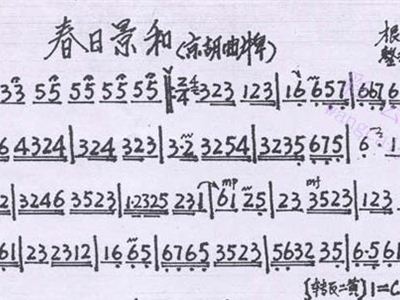 春日景和(京胡曲牌)
根
整
33 55 55 55 55‖2/4 323 123|16 657|667 6
6 4324|324 323|3·2 3254|3235 675|6 1
2|3246 3523|1·2325 231|61 25|23 3523|123
mp mf
61|232312|16 65|6765 3523|5632 35|6·561
[转反二黄] 1=C